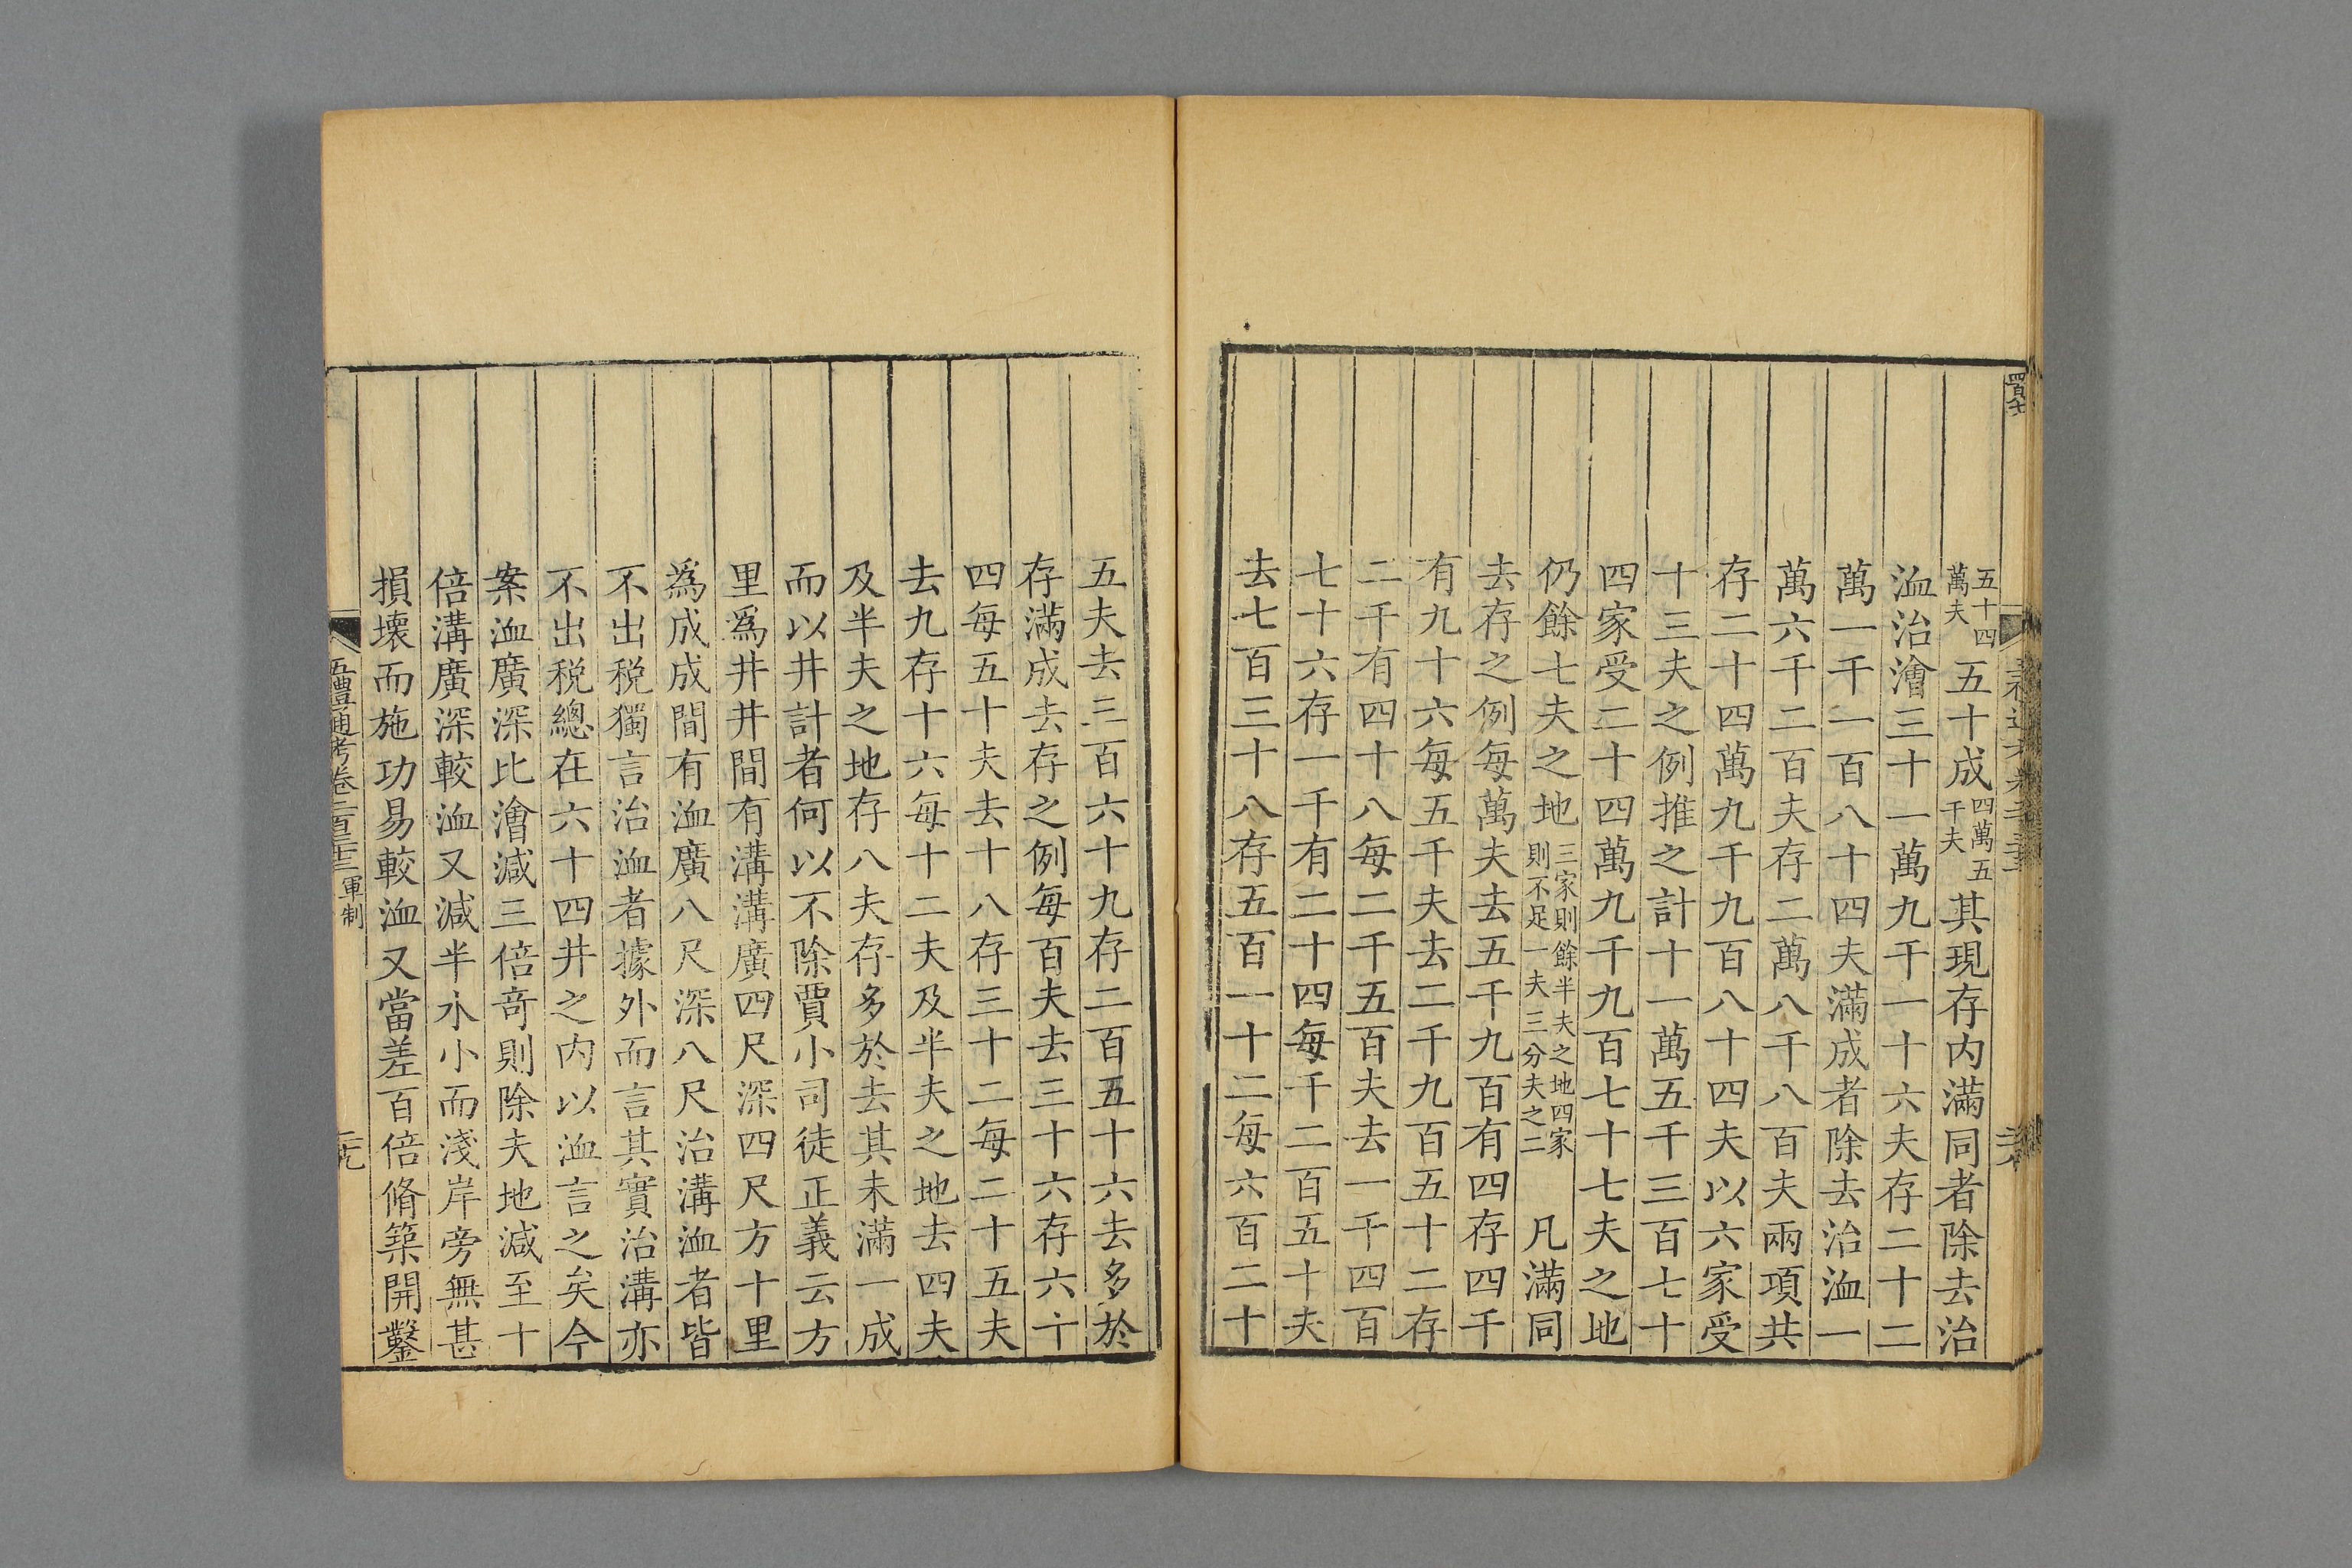 五十四萬夫五十成四萬五千夫其現存内滿同者除去治
洫治澮三十一萬九千一十六夫存二十二
萬一千一百八十四夫滿成者除去治洫一
萬六千二百夫存二萬八千八百夫兩項共
存二十四萬九千九百八十四夫以六家受
十三夫之例推之計十一萬五千三百七十
四家受二十四萬九千九百七十七夫之地
仍餘七夫之地三家則餘半夫之地四家則不足一夫三分夫之二 凡滿同
去存之例每萬夫去五千九百有四存四千
有九十六每五千夫去二千九百五十二存
二千有四十八每二千五百夫去一千四百
七十六存一千有二十四每千二百五十夫
去七百三十八存五百一十二每六百二十
五夫去三百六十九存二百五十六去多於
存滿成去存之例每百夫去三十六存六十
四每五十夫去十八存三十二每二十五夫
去九存十六每十二夫及半夫之地去四夫
及半夫之地存八夫存多於去其未滿一成
而以井計者何以不除賈小司徒正義云方
里爲井井間有溝溝廣四尺深四尺方十里
爲成成間有洫廣八尺深八尺治溝洫者皆
不出税獨言治洫者據外而言其實治溝亦
不出税總在六十四井之内以洫言之矣今
案洫廣深比澮減三倍竒則除夫地減至十
倍溝廣深較洫又減半水小而淺岸旁無甚
損壞而施功易較洫又當差百倍脩築開鑿
五禮通考卷二百三十三 軍制